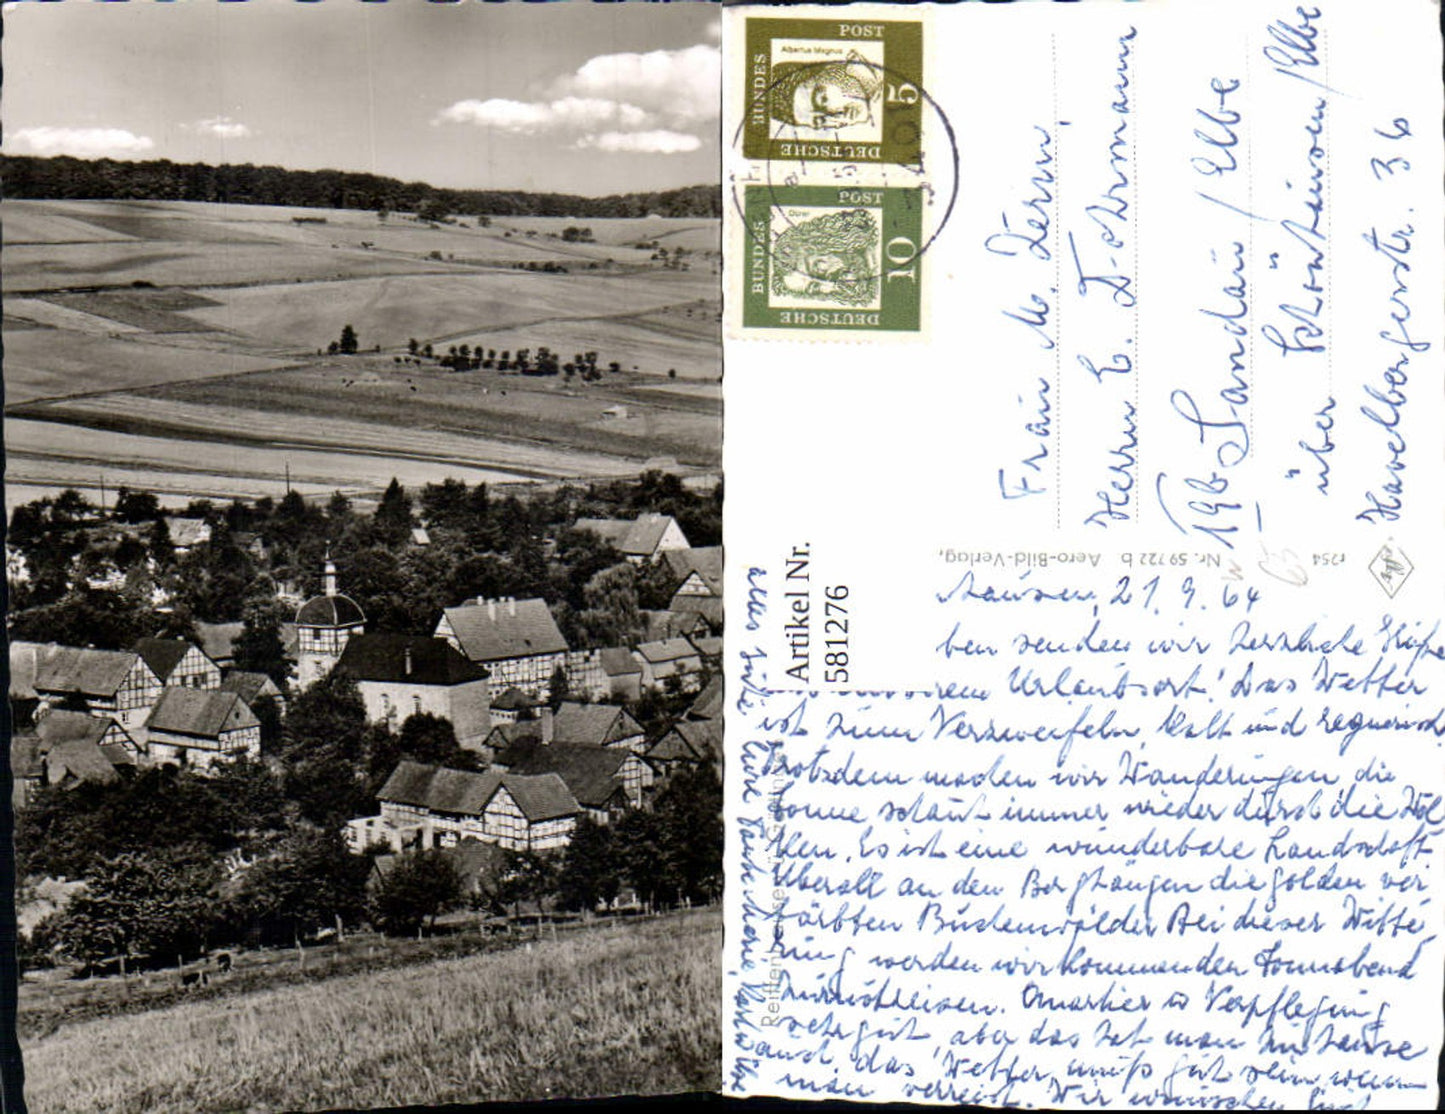 DEUTSCHE BUNDES POST
Albertus Magnus
5
DEUTSCHE BUNDES POST
Dürer
10
Artikel Nr.
581276
Nr. 59 722 b Aero-Bild-Verlag,
r254
Frau M. Dern,
Herrn E.
196 Sandau/Elbe
über Schönhausen/Elbe
Havelbergerstr. 36
21. 9. 64
ben senden wir herzliche Grüße
Urlaubsort! Das Wetter
ist zum Verzweifeln, kalt und regnerisch
Trotzdem machen wir Wanderungen, die
Sonne schaut immer wieder durch die Wol
ken. Es ist eine wunderbare Landschaft.
Überall an den Berghängen die golden ver
färbten Buchenwälder. Bei dieser Witte
rung werden wir kommenden Sonnabend
zurückreisen. Quartier u Verpflegung
sehr gut, aber das hat man zu Hause
auch, das Wetter muß gut sein, wenn
man verreist. Wir wünschen Euch
alles Gute Eure